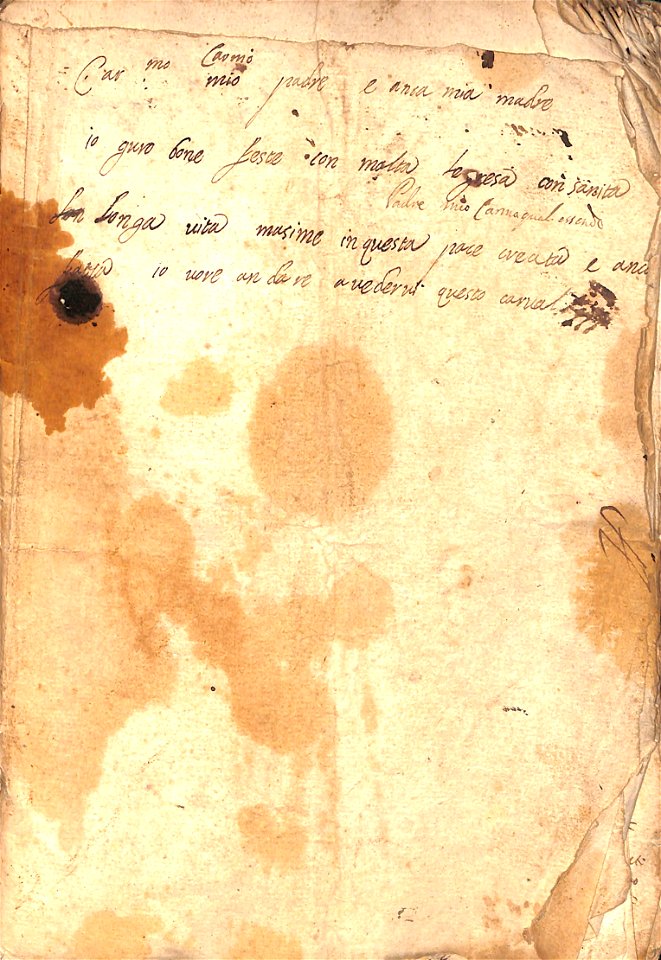 Carmo
Car mo mio padre e anca mia madre
io guro bone feste con molta legresa con sanita
Padre mio Carmo qual essendo
longa vita masime in questa pace creata e anca
fatta io vore andare a vedervi questo carval